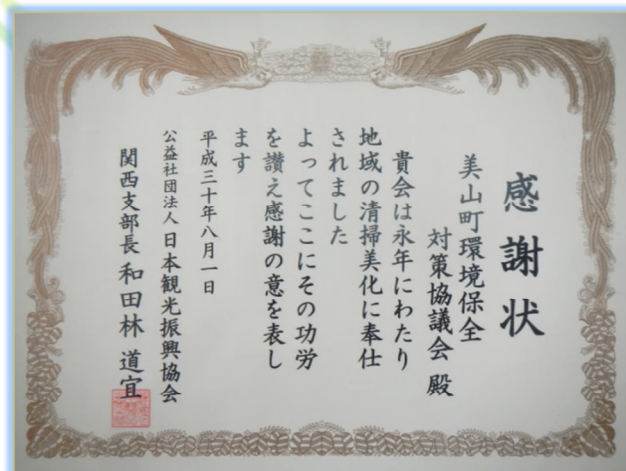 感謝状
美山町環境保全
対策協議会 殿
貴会は永年にわたり
地域の清掃美化に奉仕
されました
よってここにその功労
を讃え感謝の意を表し
ます
平成三十年八月一日
公益社団法人 日本観光振興協会
関西支部長 和田林 道宜